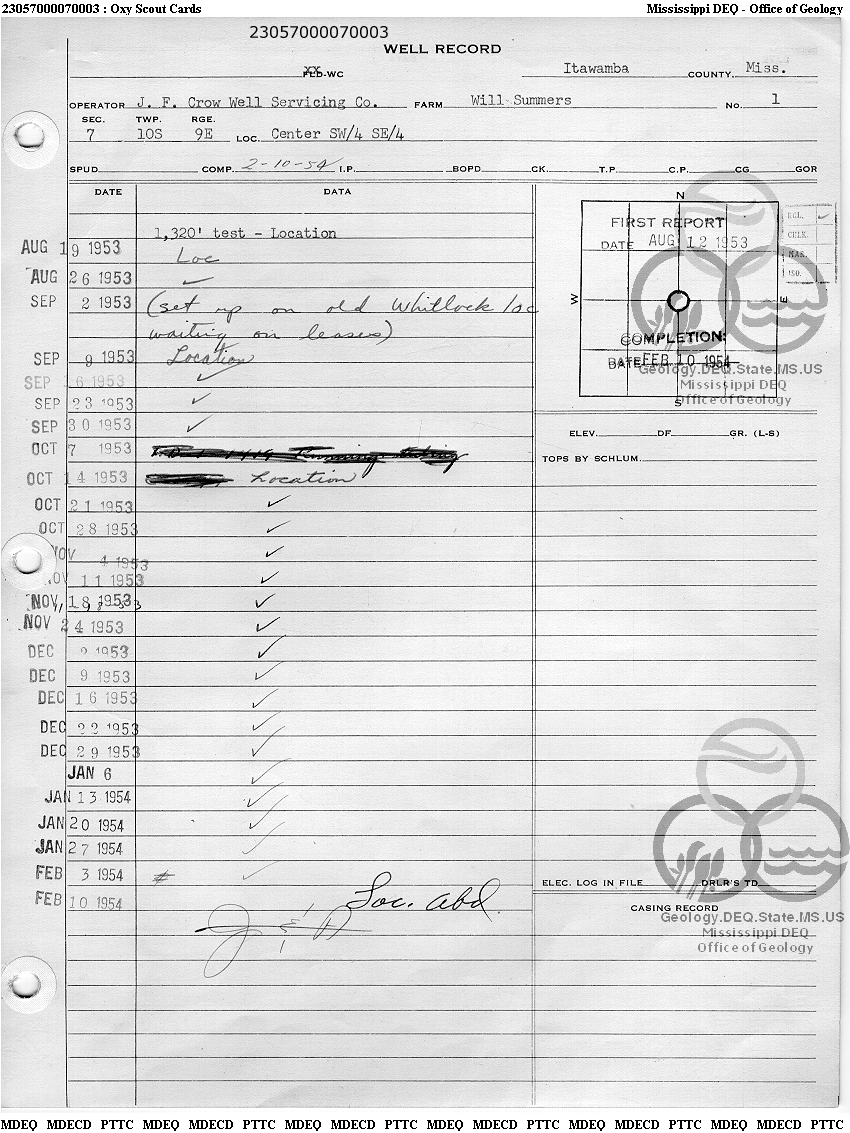 23057000070003 : Oxy Scout Cards
Mississippi DEQ - Office of Geology
23057000070003
WELL RECORD
XX
FLD-WC Itawamba COUNTY. Miss.
OPERATOR J. F. Crow Well Servicing Co. FARM Will Summers No. 1
SEC. TWP. RGE.
7 10S 9E LOC. Center SW/4 SE/4
SPUD COMP. 2-10-54 I.P. BOPD CK. T.P. C.P. CG GOR
DATE DATA
1,320' test - Location
AUG 19 1953 Loc
AUG 26 1953 ✓
SEP 2 1953 (set up on old Whitlock loc
waiting on leases)
SEP 9 1953 Location
SEP 16 1953 ✓
SEP 23 1953 ✓
SEP 30 1953 ✓
OCT 7 1953
OCT 14 1953 Location
OCT 21 1953 ✓
OCT 28 1953 ✓
NOV 4 1953 ✓
NOV 11 1953 ✓
NOV 18 1953 ✓
NOV 24 1953 ✓
DEC 2 1953 ✓
DEC 9 1953 ✓
DEC 16 1953 ✓
DEC 22 1953 ✓
DEC 29 1953 ✓
JAN 6 ✓
JAN 13 1954 ✓
JAN 20 1954 ✓
JAN 27 1954 ✓
FEB 3 1954 # ✓
FEB 10 1954 Loc. abd.
N
FIRST REPORT
DATE AUG 12 1953
W E
COMPLETION:
DATE FEB 10 1954
S
Geology.DEQ.State.MS.US
Mississippi DEQ
Office of Geology
ELEV. DF. GR. (L-S)
TOPS BY SCHLUM.
ELEC. LOG IN FILE DRLR'S TD
CASING RECORD
Geology.DEQ.State.MS.US
Mississippi DEQ
Office of Geology
MDEQ MDECD PTTC MDEQ MDECD PTTC MDEQ MDECD PTTC MDEQ MDECD PTTC MDEQ MDECD PTTC MDEQ MDECD PTTC